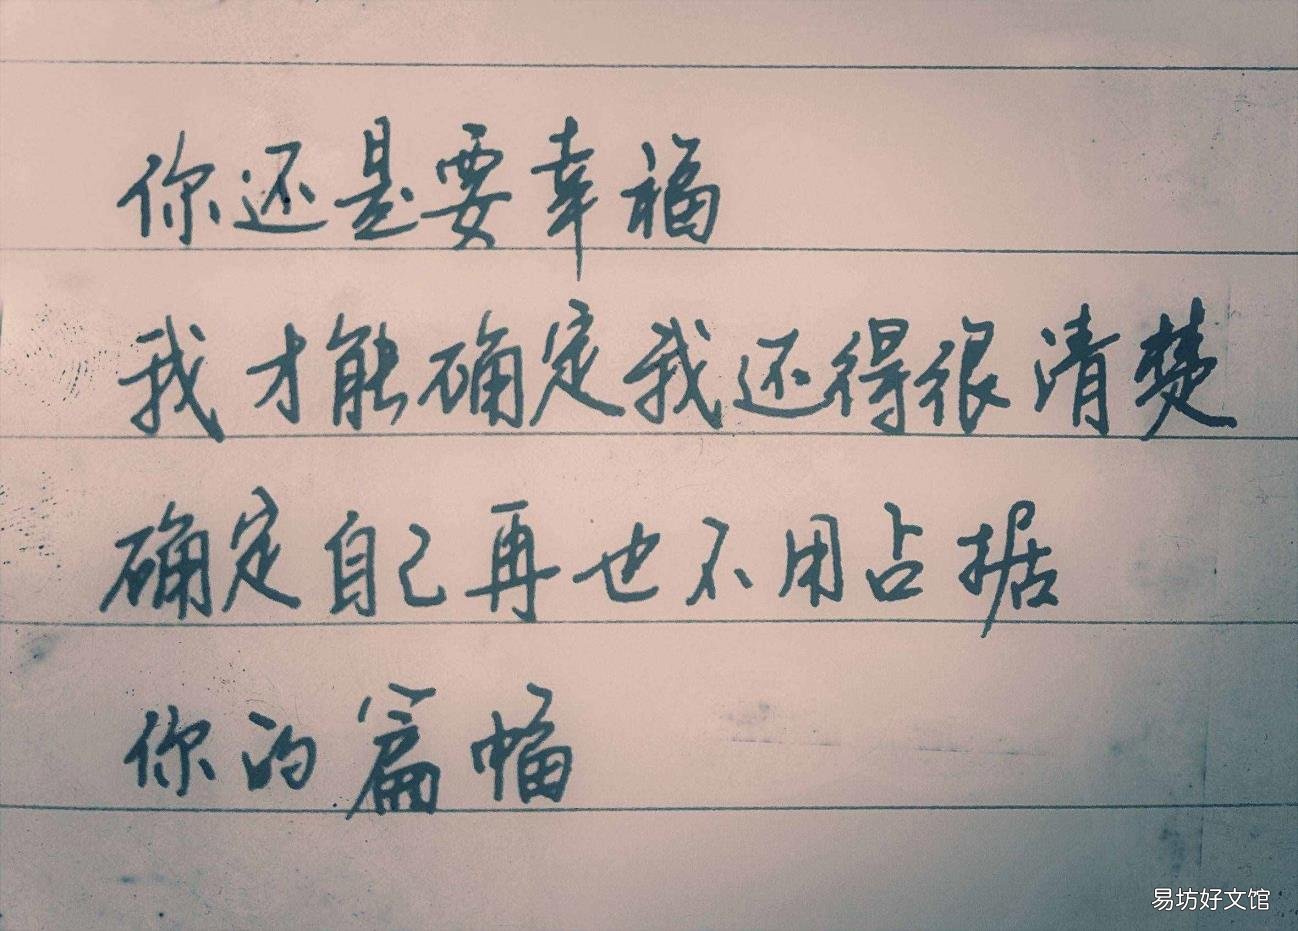 你还是要幸福
我才能确定我还得很清楚
确定自己再也不用占据
你的篇幅
易坊好文馆